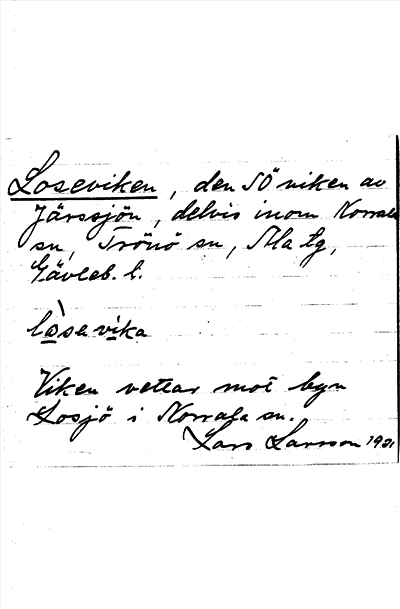 Loseviken, den SÖ viken av
Järssjön, delvis inom Norrala
sn, Trönö sn, Ala tg,
Gävleb. l.
lò̱se vi̱ka
Viken vettar mot byn
Losjö i Norrala sn.
Lars Larsson